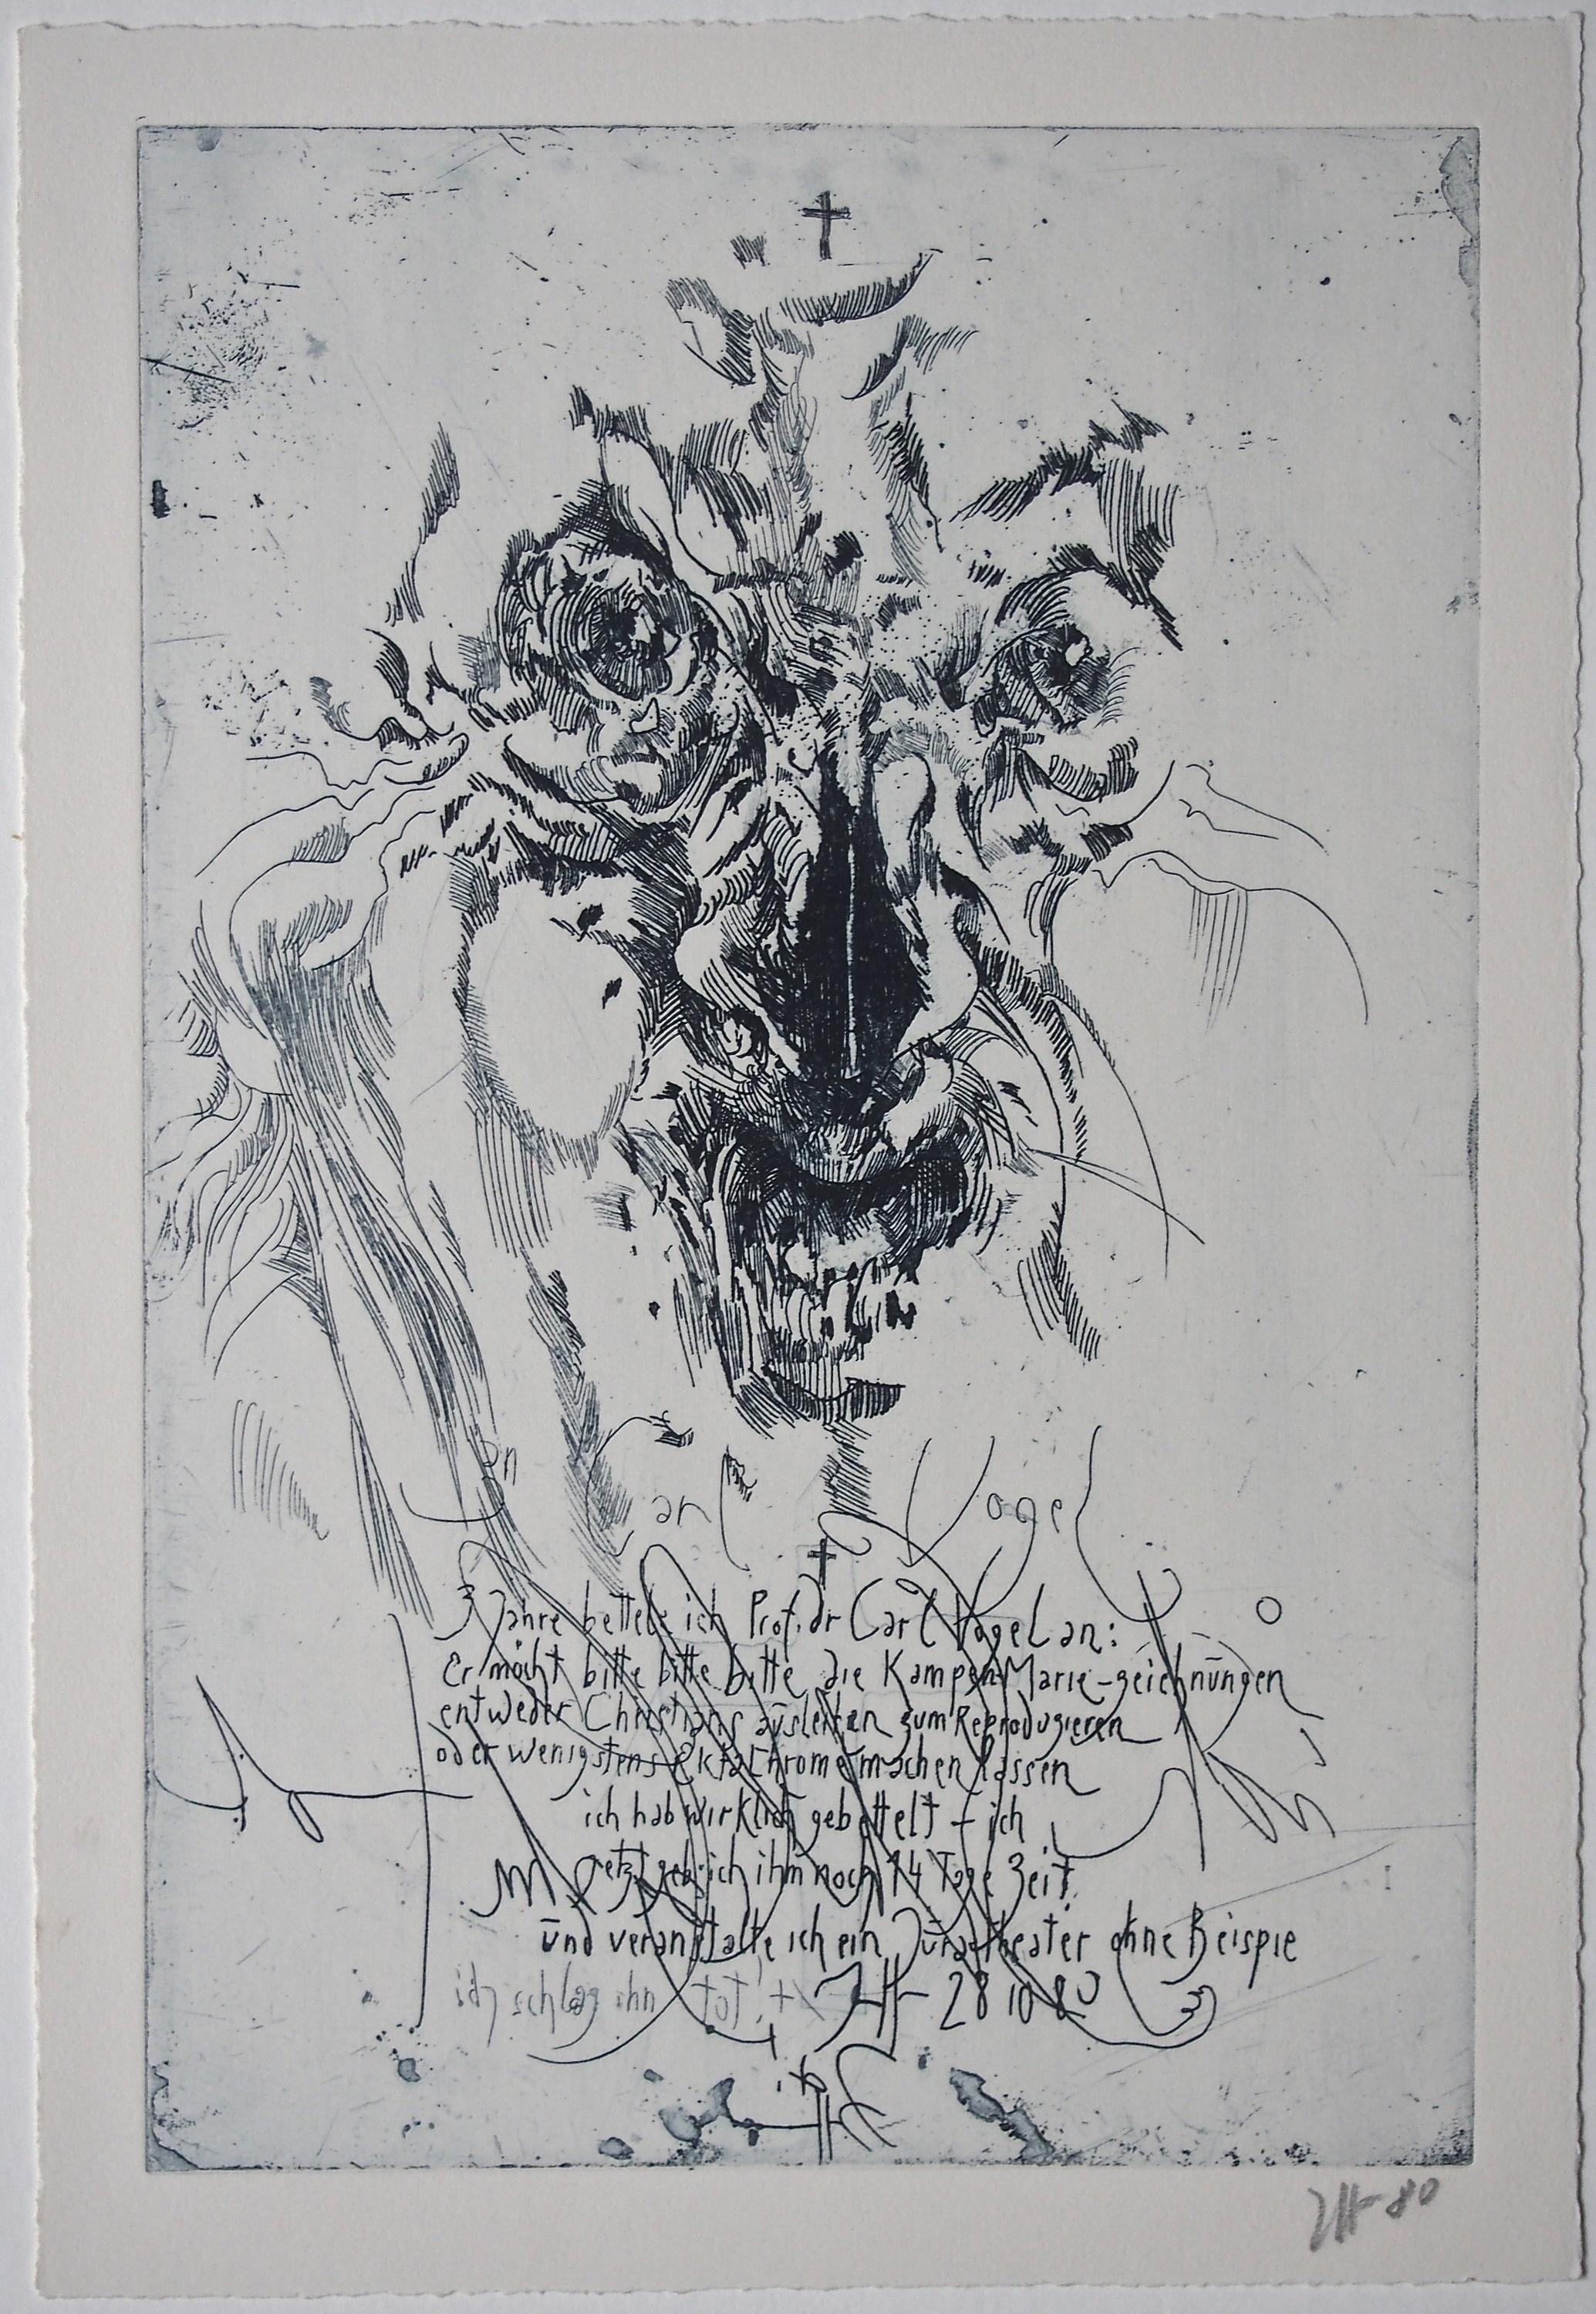 An
Carl Vogel
3 Jahre bettele ich Prof. dr Carl Vogel an:
Er möcht bitte bitte bitte die KampenMarie-zeichnūngen
entweder Christians aūsleihen zum Reprodūzieren
oder wenigstens Ektachrome machen lassen
ich hab wirklich gebettelt – ich
Jetzt geb ich ihm noch 14 Tage Zeit
ūnd veranstalte ich ein Jūra-theater ohne Beispie
ich schlag ihn tot! + 28 10 80
80